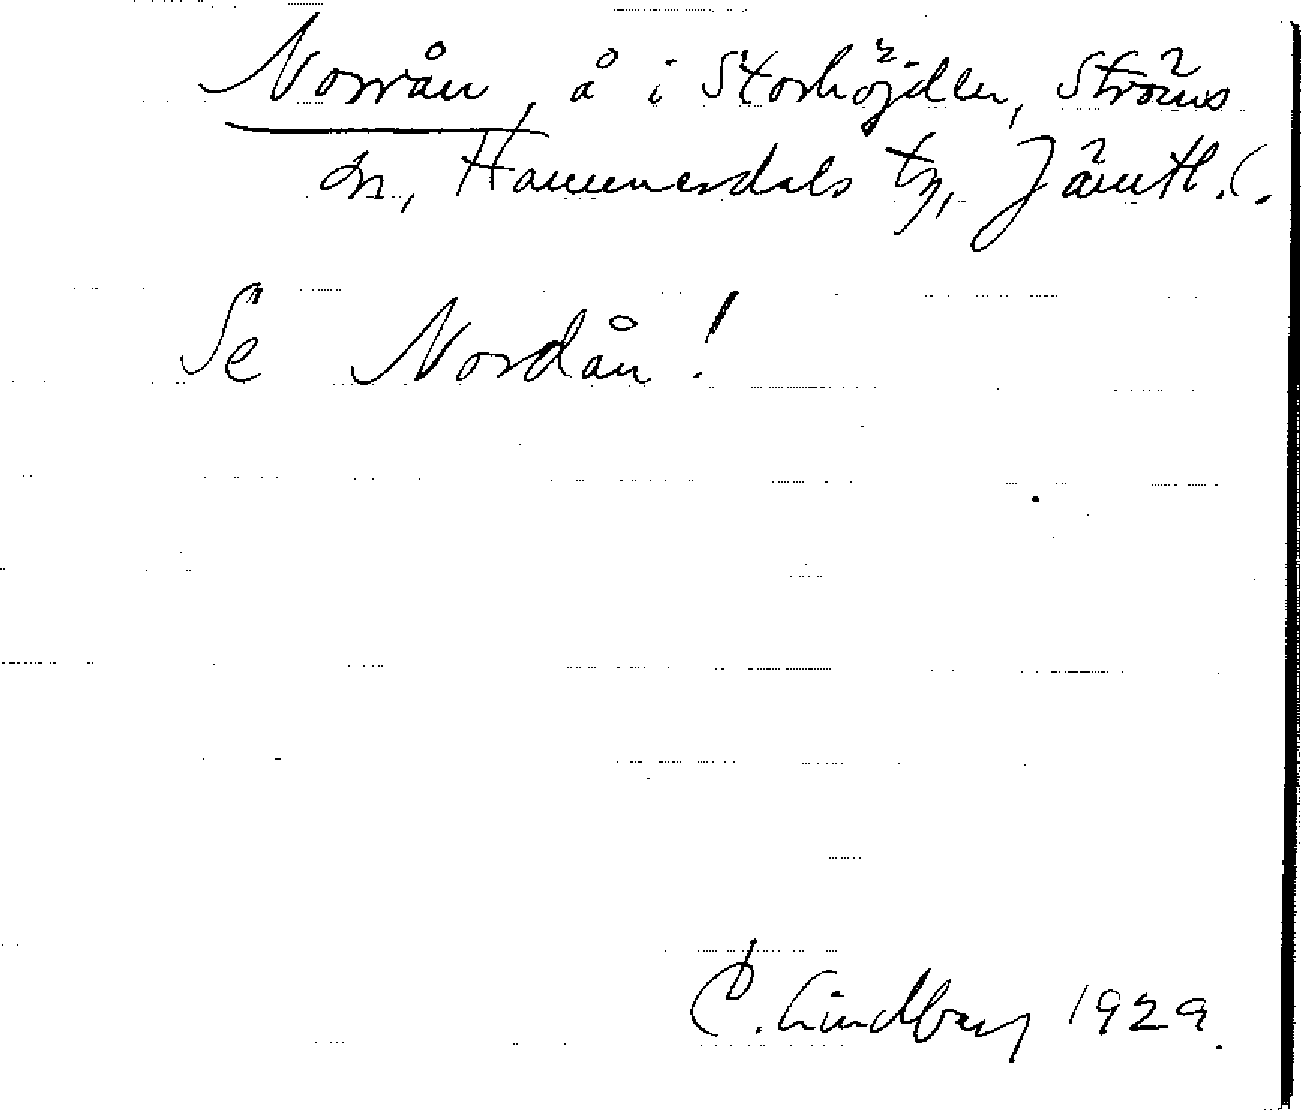 Norrån, å i Storhöjden, Ströms
sn, Hammerdals tg, Jämtl. l.
Se Nordån!
C. Lindberg 1929.